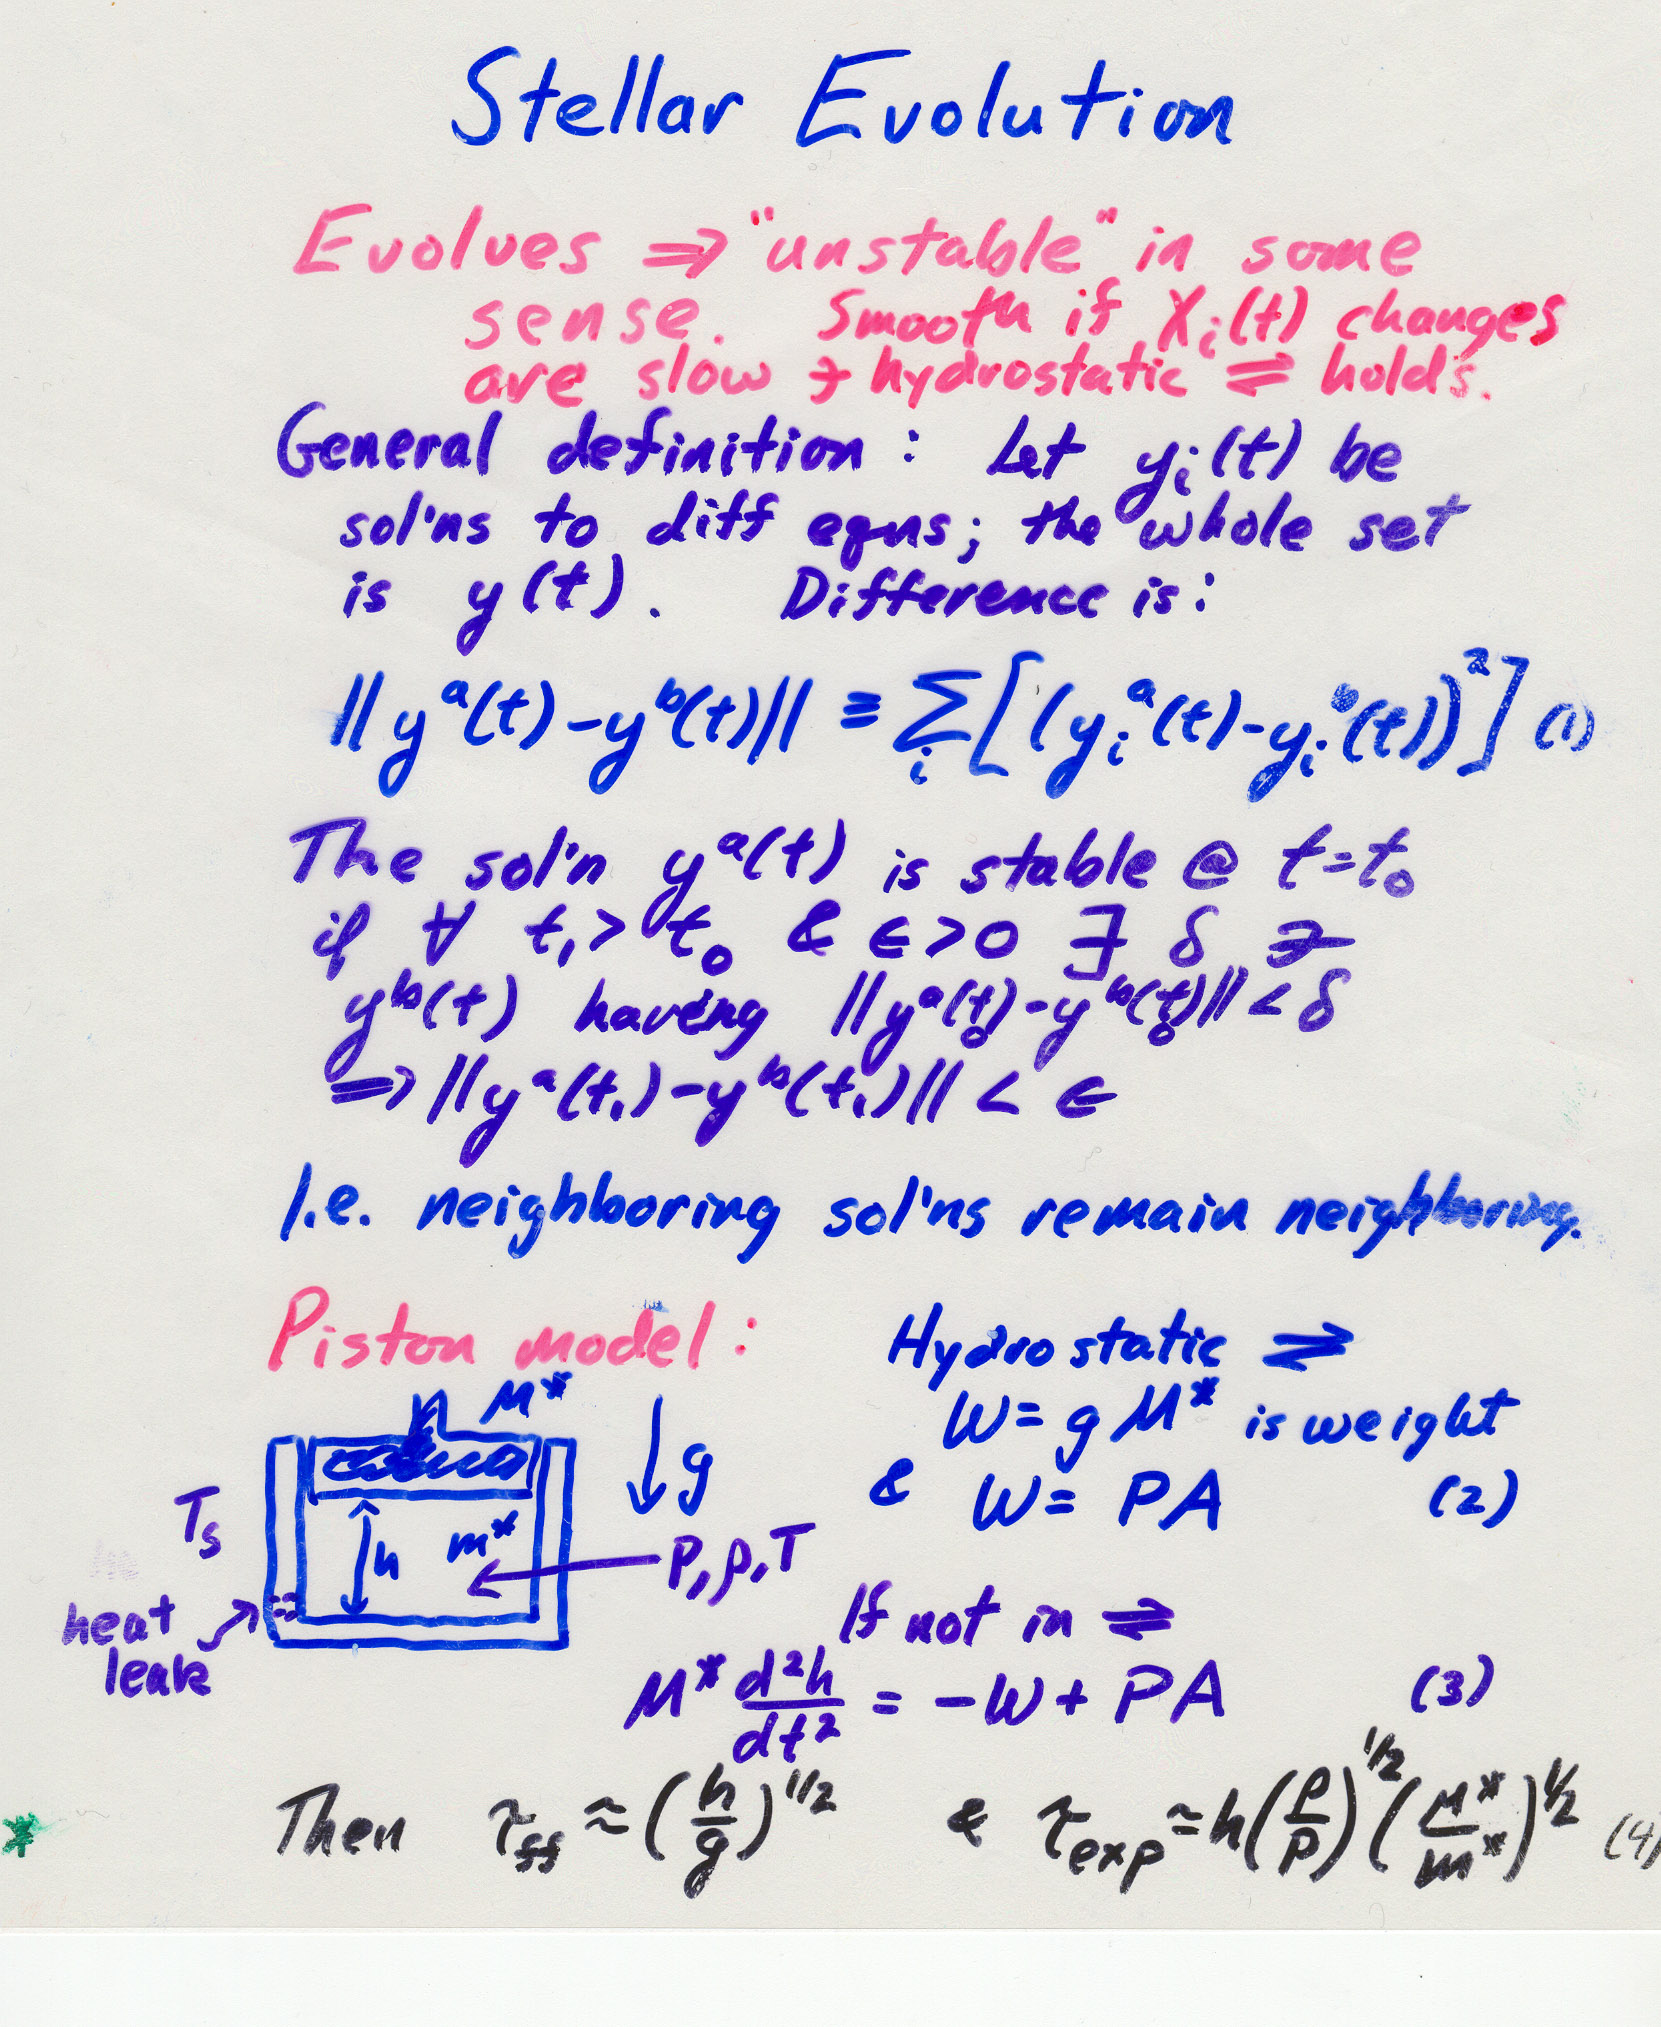 Stellar Evolution
Evolves ⇒ "unstable" in some
sense. Smooth if Xᵢ(t) changes
are slow + hydrostatic ⇌ holds.
General definition: Let yᵢ(t) be
sol'ns to diff eqns; the whole set
is y(t). Difference is:
||yᵃ(t)-yᵇ(t)|| ≡ Σᵢ[(yᵢᵃ(t)-yᵢᵇ(t))²] (1)
The sol'n yᵃ(t) is stable @ t=t₀
if ∀ t₁> t₀ & ϵ>0 ∃ δ ∋
yᵇ(t) having ||yᵃ(t₀)-yᵇ(t₀)|| < δ
⇒ ||yᵃ(t₁)-yᵇ(t₁)|| < ϵ
I.e. neighboring sol'ns remain neighboring.
Piston model:
Hydrostatic ⇌
M*
W= g M* is weight
g
& W= PA (2)
Tₛ
h m*
P, ρ, T
heat
leak
If not in ⇌
M* d²h/dt² = -W + PA (3)
* Then τff ≈ (h/g)^1/2 & τexp ≈ h(ρ/P)^1/2 (M*/m*)^1/2 (4)